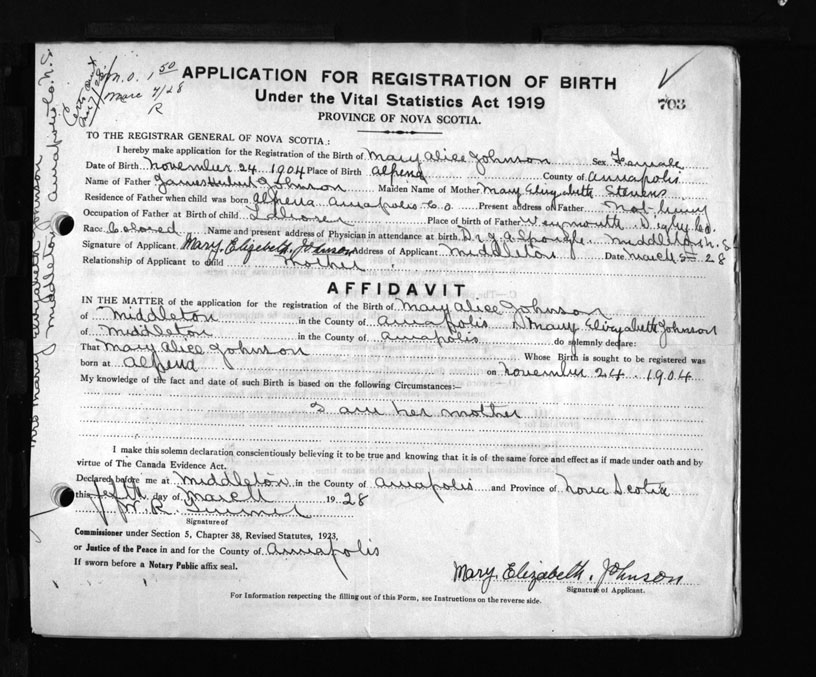 M.O. 1.50
Marc 4/28
R
APPLICATION FOR REGISTRATION OF BIRTH
703
Under the Vital Statistics Act 1919
PROVINCE OF NOVA SCOTIA.
TO THE REGISTRAR GENERAL OF NOVA SCOTIA:
I hereby make application for the Registration of the Birth of Mary Alice Johnson Sex Female
Date of Birth November 24 1904 Place of Birth Alpena County of Annapolis
Name of Father James Johnson Maiden Name of Mother Mary Elizabeth Stevens
Residence of Father when child was born Alpena Annapolis Co Present address of Father Not living
Occupation of Father at Birth of child Laborer Place of birth of Father Weymouth Digby Co.
Race Colored Name and present address of Physician in attendance at birth Dr Middleton N.S
Signature of Applicant Mary. Elizebeth. Johnson Address of Applicant Middleton Date March 5 28
Relationship of Applicant to child Mother
AFFIDAVIT
IN THE MATTER of the application for the registration of the Birth of Mary Alice Johnson
of Middleton in the County of Annapolis I Mary Elizabeth Johnson
of Middleton in the County of Annapolis do solemnly declare:
That Mary Alice Johnson Whose Birth is sought to be registered was
born at Alpena on November 24. 1904
My knowledge of the fact and date of such Birth is based on the following Circumstances:—
I am her mother
I make this solemn declaration conscientiously believing it to be true and knowing that it is of the same force and effect as if made under oath and by
virtue of The Canada Evidence Act.
Declared before me at Middleton in the County of Annapolis and Province of Nova Scotia
this fifth day of March 1928
W. R.
Signature of
Commissioner under Section 5, Chapter 38, Revised Statutes, 1923,
or Justice of the Peace in and for the County of Annapolis
If sworn before a Notary Public affix seal.
Mary. Elizabeth. Johnson
Signature of Applicant.
For Information respecting the filling out of this Form, see Instructions on the reverse side.
Mrs Mary Elizabeth Johnson
Middleton Annapolis Co. N.S.